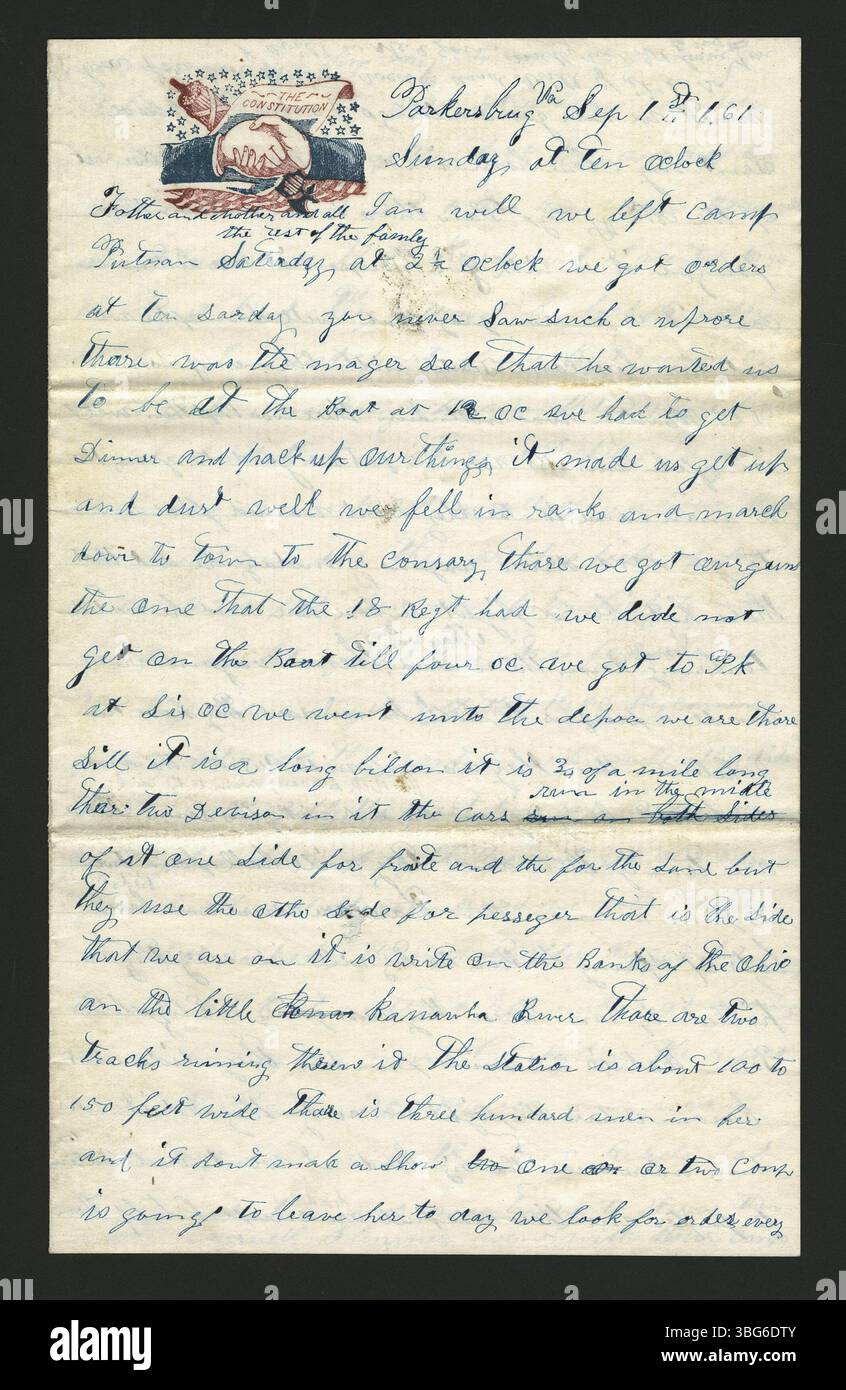 THE
CONSTITUTION
Parkersbrug Va Sep 1st 1861
Sunday at ten oclock
Father and Mother and all
the rest of the famley
I am well we left camp
Putnam Saterday at 2 1/2 oclock we got orders
at ten sarday you never saw such a uprore
thare was the mager sed that he wanted us
to be at the Boat at 12 OC we had to get
Dinner and pack up our things it made us get up
and dust well we fell in ranks and march
down to town to the thare we got our guns
the one that the 18 Regt had we dide not
get on the Boat till four OC we got to Pk
at Six OC we went unto the depoe we are thare
Still it is a long bildon it is 3/4 of a mile long
thare two Devison in it the cars run in the midle
of it one side for fraite and the for the Same but
they use the othe Side for pesseger that is the Side
that we are on it is write on the Banks of the Ohio
an the little Kannawha River thare are two
tracks running threw it The Station is about 100 to
150 feet wide thare is three hundard men in her
and it dont make a Show one or two Comp
is going to leave her to day we look for order every
alamy
Image ID: 3BG6DTY
www.alamy.com